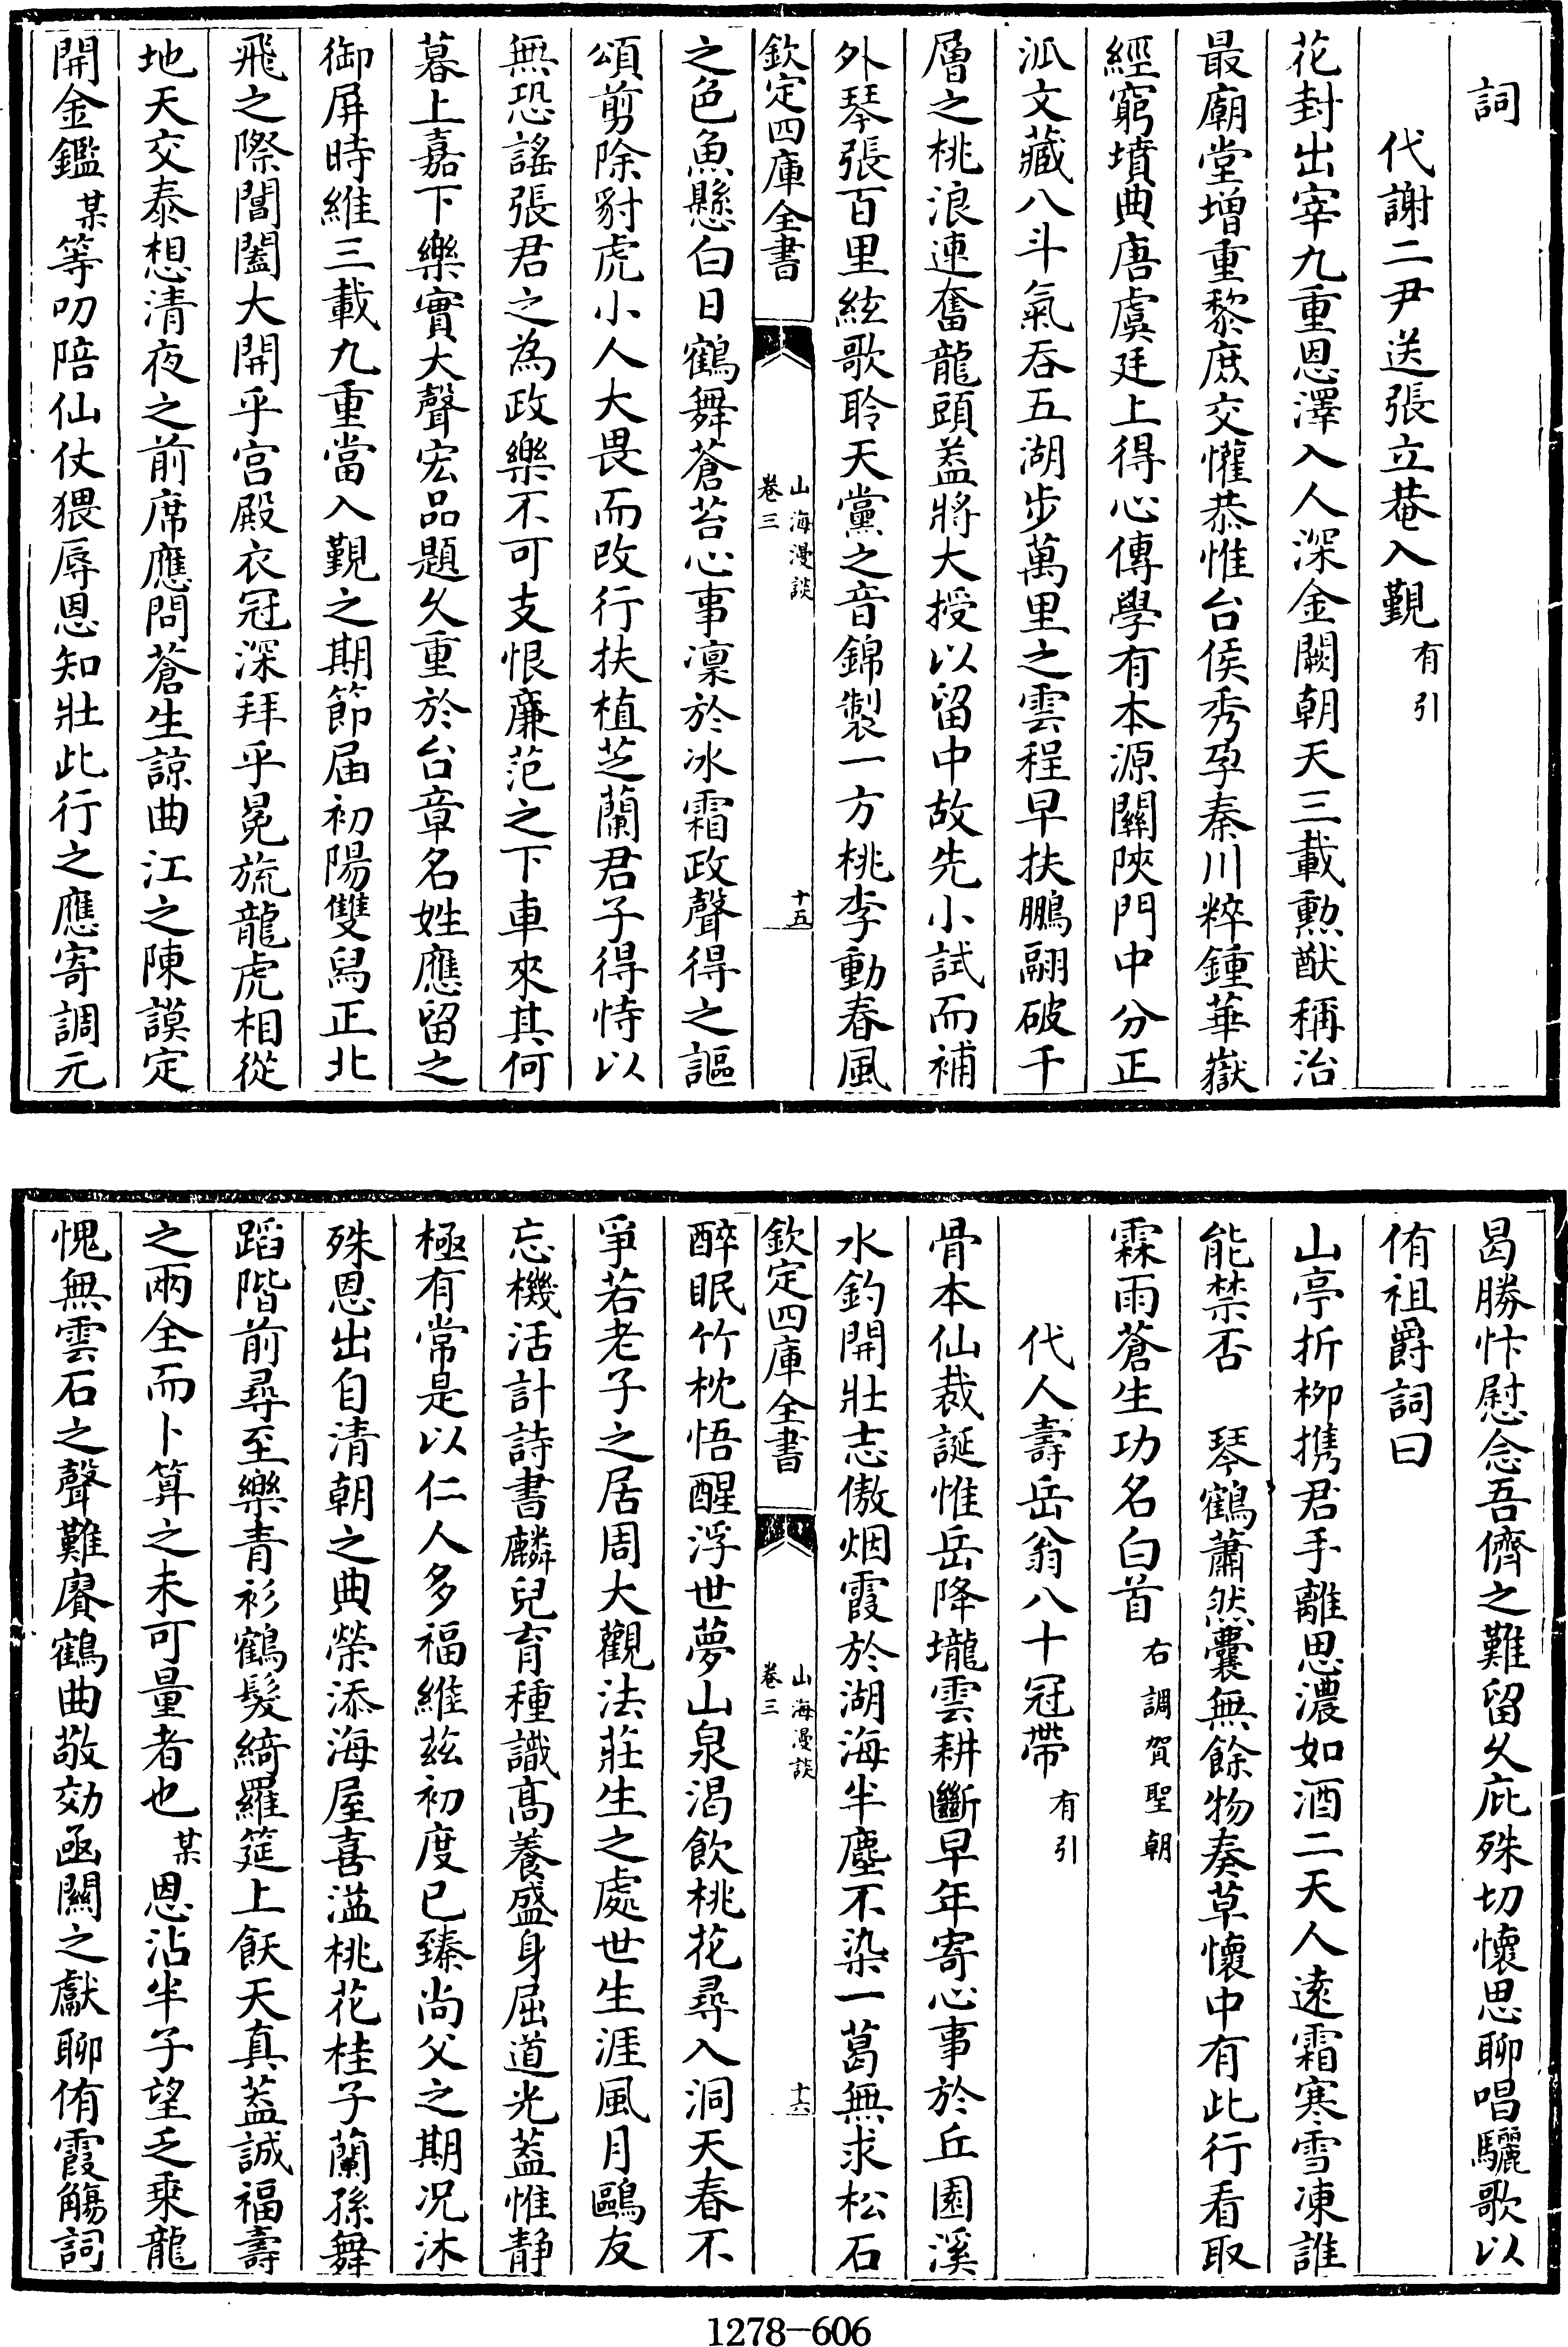 詞
代謝二尹送張立菴入覲有引
花封出宰九重恩澤入人深金闕朝天三載勲猷稱治
最廟堂増重黎庶交懽恭惟台侯秀孕秦川粹鍾華嶽
經窮墳典唐虞廷上得心傳學有本源關陝門中分正
泒文藏八斗氣吞五湖步萬里之雲程早扶鵬翮破千
層之桃浪連奮龍頭葢將大授以留中故先小試而補
外琴張百里絃歌聆天黨之音錦製一方桃李動春風
欽定四庫全書
山海漫談
卷三
十五
之色魚懸白日鶴舞蒼苔心事凛於冰霜政聲得之謳
頌剪除豺虎小人大畏而改行扶植芝蘭君子得恃以
無恐謠張君之為政樂不可支恨廉范之下車來其何
暮上嘉下樂實大聲宏品題久重於台章名姓應留之
御屏時維三載九重當入覲之期節届初陽雙舄正北
飛之際閶闔大開乎宫殿衣冠深拜乎冕旒龍虎相從
地天交泰想清夜之前席應問蒼生諒曲江之陳謨定
開金鑑某等叨陪仙仗猥辱恩知壯此行之應寄調元
曷勝忭慰念吾儕之難留久庇殊切懷思聊唱驪歌以
侑祖爵詞曰
山亭折栁携君手離思濃如酒二天人逺霜寒雪凍誰
能禁否　琴鶴蕭然囊無餘物奏草懷中有此行看取
霖雨蒼生功名白首右調賀聖朝
代人壽岳翁八十冠帶有引
骨本仙裁誕惟岳降壠雲耕斷早年寄心事於丘園溪
水釣開壯志傲烟霞於湖海半塵不染一葛無求松石
欽定四庫全書
山海漫談
卷三
十六
醉眠竹枕悟醒浮世夢山泉渴飲桃花尋入洞天春不
爭若老子之居周大觀法莊生之處世生涯風月鷗友
忘機活計詩書麟兒育種識髙養盛身屈道光葢惟静
極有常是以仁人多福維兹初度已臻尚父之期况沐
殊恩出自清朝之典榮添海屋喜溢桃花桂子蘭孫舞
蹈階前尋至樂青衫鶴髮綺羅筵上飫天真葢誠福壽
之兩全而卜算之未可量者也某恩沾半子望乏乗龍
愧無雲石之聲難賡鶴曲敬効凾關之獻聊侑霞觴詞
1278-606